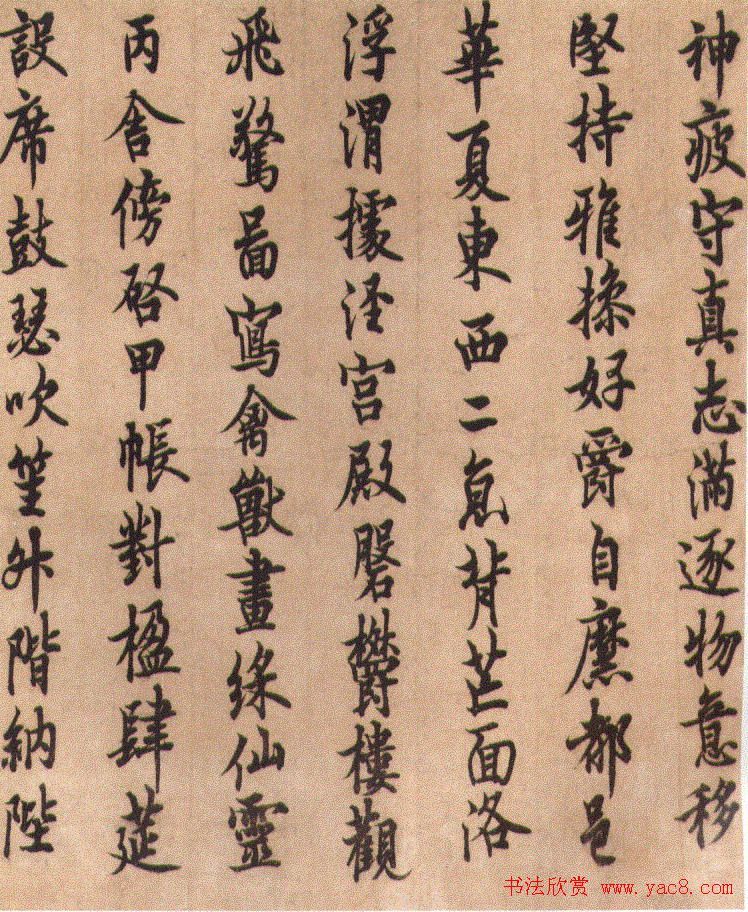 神疲守真志滿逐物意移
堅持雅操好爵自縻都邑
華夏東西二京背芒面洛
浮渭據涇宮殿磐鬱樓觀
飛驚啚寫禽獸畫綵仙靈
丙舍傍啓甲帳對楹肆筵
設席鼓瑟吹笙升階納陛
书法欣赏 www.yac8.com